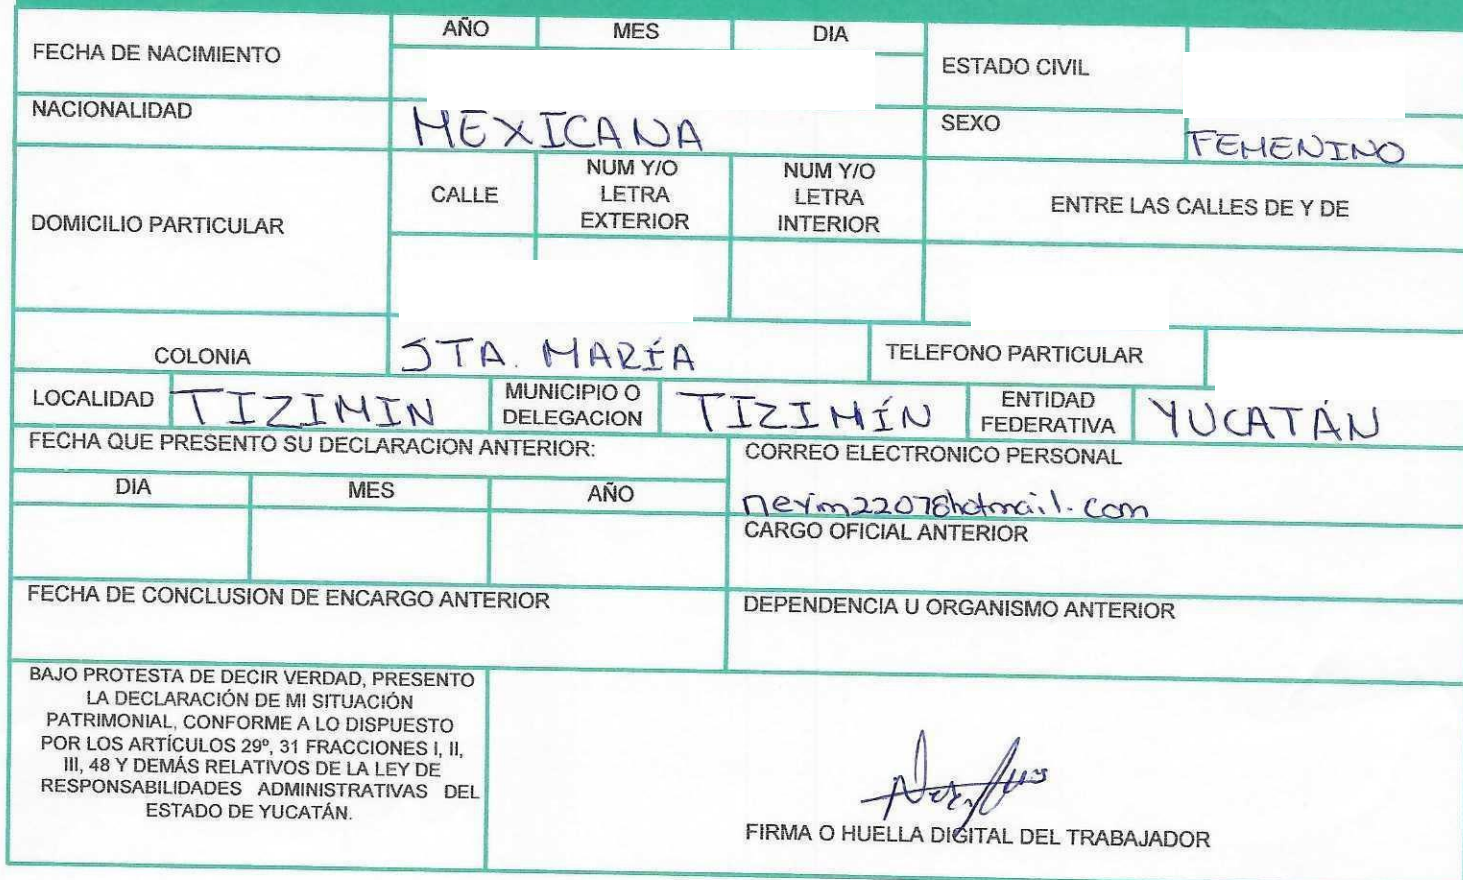 AÑO MES DIA
FECHA DE NACIMIENTO
ESTADO CIVIL
NACIONALIDAD
MEXICANA
SEXO
FEMENINO
DOMICILIO PARTICULAR
CALLE
NUM Y/O
LETRA
EXTERIOR
NUM Y/O
LETRA
INTERIOR
ENTRE LAS CALLES DE Y DE
COLONIA
STA. MARÍA
TELEFONO PARTICULAR
LOCALIDAD
TIZIMIN
MUNICIPIO O
DELEGACION
TIZIMÍN
ENTIDAD
FEDERATIVA
YUCATÁN
FECHA QUE PRESENTO SU DECLARACION ANTERIOR:
DIA MES AÑO
CORREO ELECTRONICO PERSONAL
CARGO OFICIAL ANTERIOR
FECHA DE CONCLUSION DE ENCARGO ANTERIOR
DEPENDENCIA U ORGANISMO ANTERIOR
BAJO PROTESTA DE DECIR VERDAD, PRESENTO
LA DECLARACIÓN DE MI SITUACIÓN
PATRIMONIAL, CONFORME A LO DISPUESTO
POR LOS ARTÍCULOS 29º, 31 FRACCIONES I, II,
III, 48 Y DEMÁS RELATIVOS DE LA LEY DE
RESPONSABILIDADES ADMINISTRATIVAS DEL
ESTADO DE YUCATÁN.
FIRMA O HUELLA DIGITAL DEL TRABAJADOR